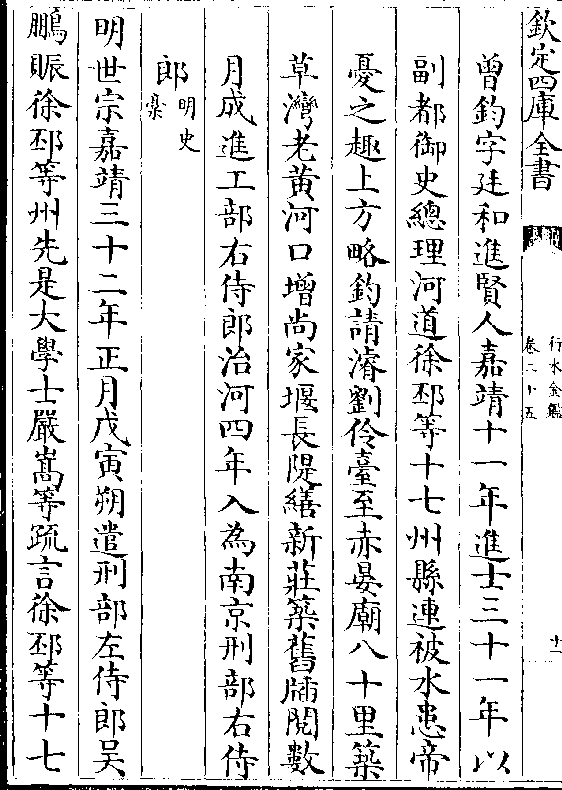 欽定四庫全書
行水金鑑
卷二十五
十一
曾鈞字廷和進賢人嘉靖十一年進士三十一年以
副都御史總理河道徐邳等十七州縣連被水患帝
憂之趣上方略鈞請濬劉伶臺至赤晏廟八十里築
草灣老黃河口增尚家堰長隄繕新莊築舊牐閱數
月成進工部右侍郎治河四年入為南京刑部右侍
郎
明史
稾
明世宗嘉靖三十二年正月戊寅朔遣刑部左侍郎吴
鵬賑徐邳等州先是大學士嚴嵩等疏言徐邳等十七